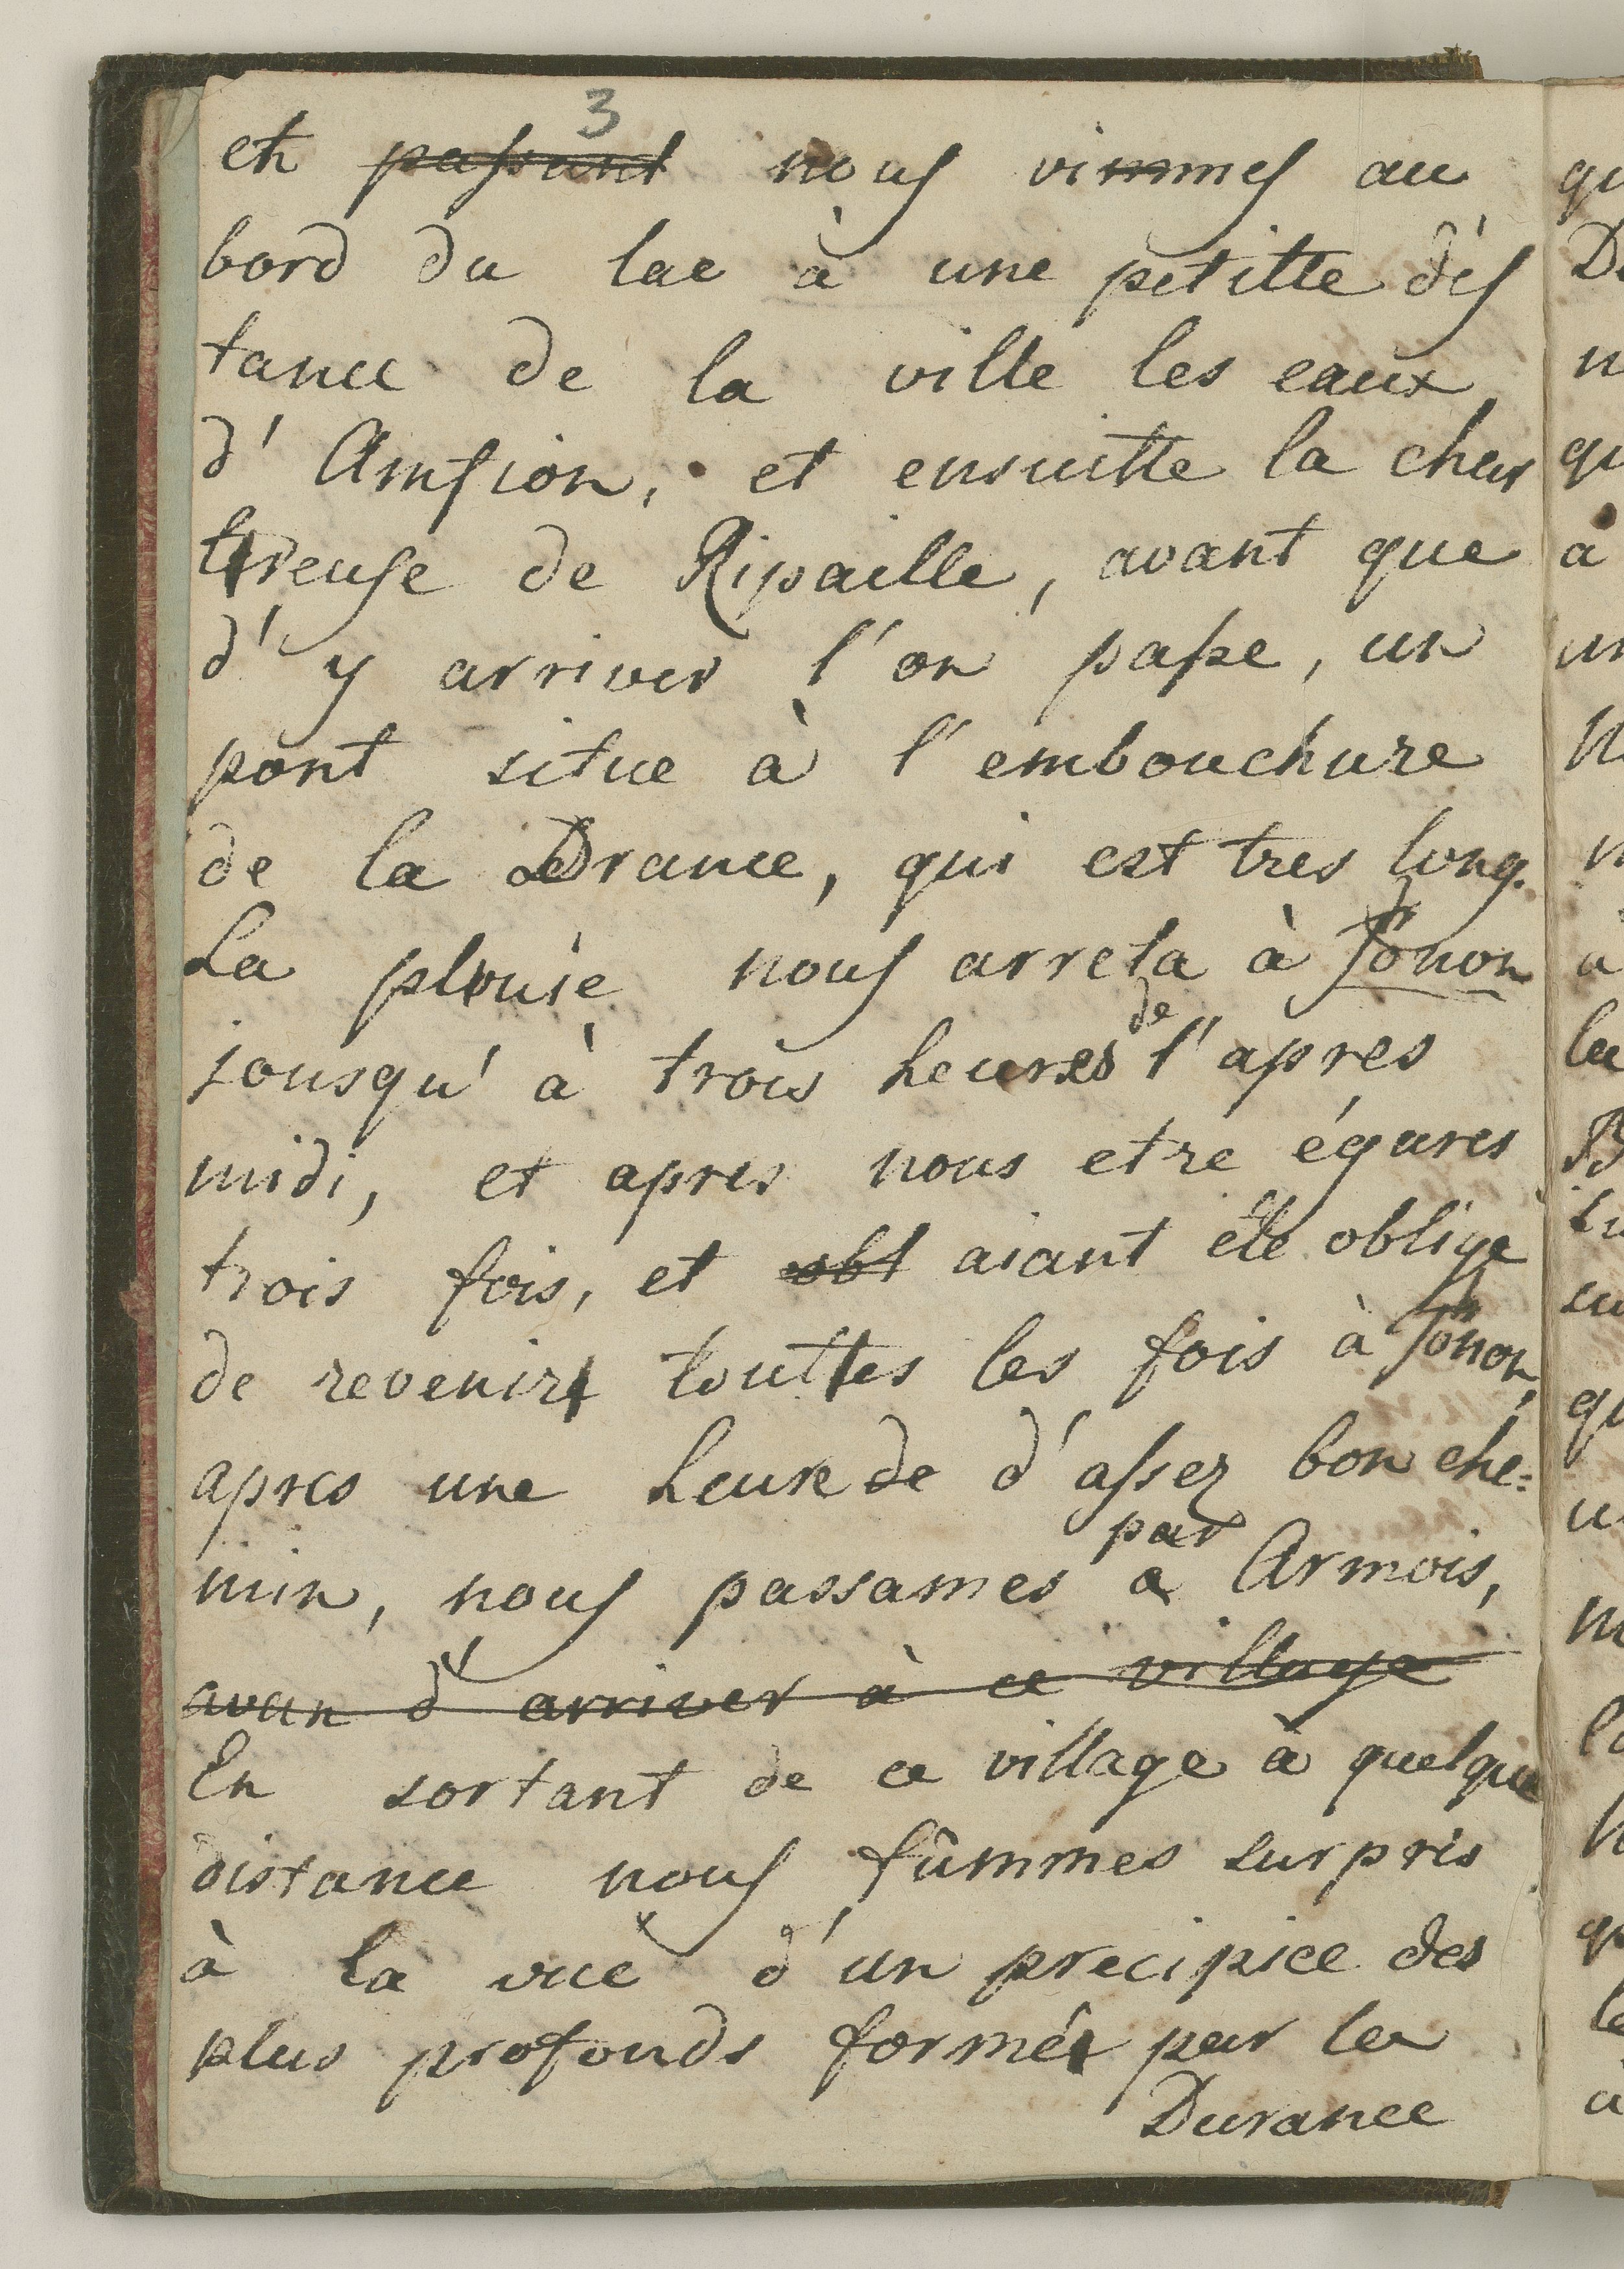 3
et passant nous vimmes au
bord du lac à une petitte dis
tance de la ville les eaux
d' Amfion, et ensuitte la char
treuse de Ripaille, avant que
d' y arriver l' on passe, un
pont situe à l' embouchure
de la Drance, qui est tres long.
La plouie nous arreta à Tonon
jousqu' à trois heures de l' apres
midi, et apres nous etre égares
trois fois, et obt aiant été oblige
de revenir touttes les fois à Tonon,
apres une heure de d' assez bon che=
min, nous passames a par Armois,
avan d' arriver à ce village
En sortant de ce village à quelque
distance nous fûmmes surpris
à la vue d' un precipice des
plus profonds formé par la
Durance